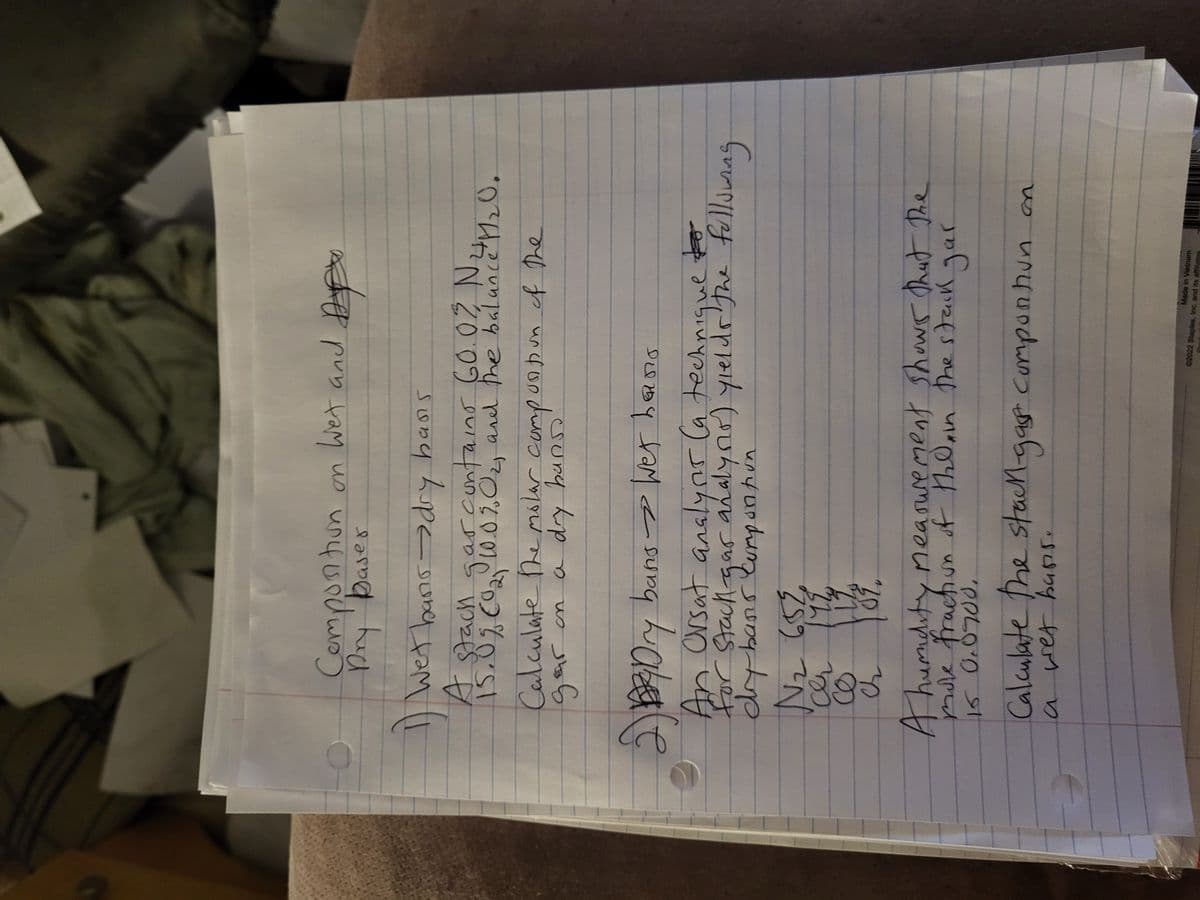 Composition on Wet and
Dry bases
1) Wet basis → dry basis
A Stack gas contains 60.0% N2,
15.0% CO2, 10.0% O2, and the balance H2O.
Calculate the molar composition of the
gas on a dry basis.
2) Dry basis → Wet basis
An Orsat analysis (a technique
for Stack-gas analysis) yields the following
dry-basis composition
N2 65%
CO2 14%
CO 11%
O2 10%
A humidity measurement shows that the
mole fraction of H2O in the stack gas
is 0.0700.
Calculate the stack-gas composition on
a wet basis.
Made in Vietnam